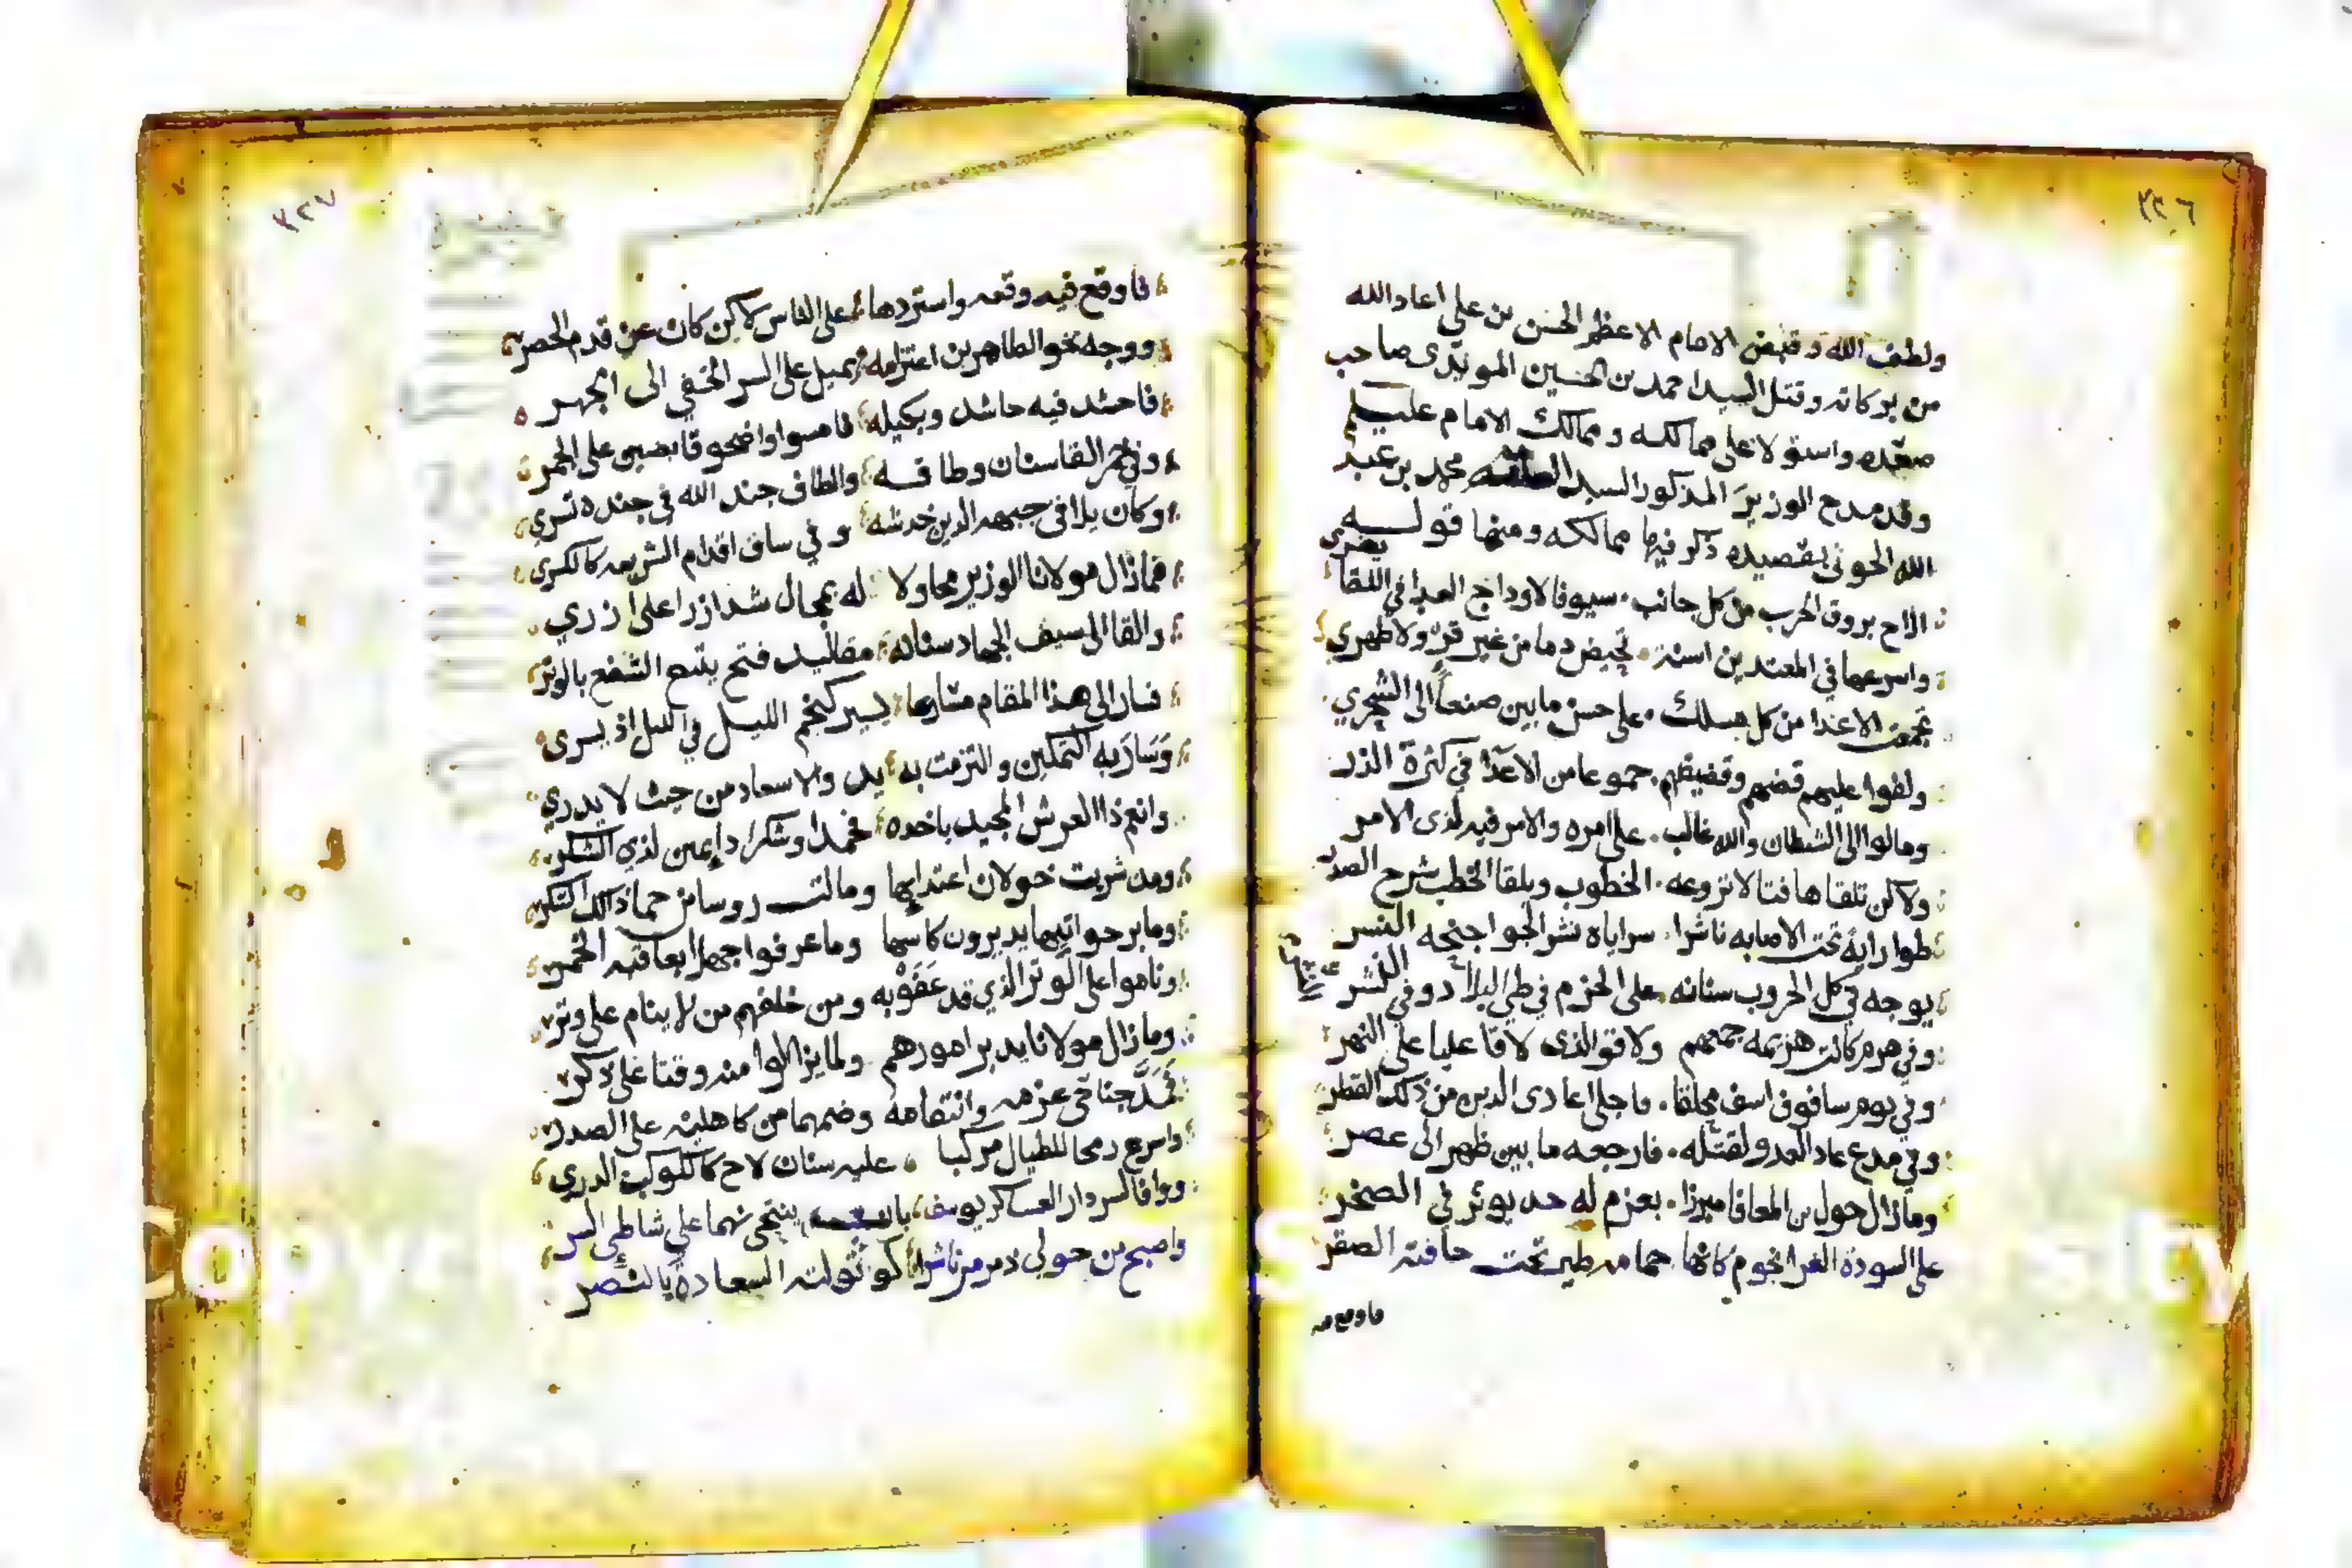 ٢٢٦
ولطف الله وقبض الامام الاعظم الحسن بن علي اعاد الله
من بركاته وقتل السيد احمد بن الحسين المويدي صاحب
صعده واستولا على ممالكه وممالك الامام عليه
وقد مدح الوزير المذكور السيد محمد بن عبد
الله الحوثي بقصيده ذكر فيها ممالكه ومنها قوله
الاح بروق الحرب من كل جانب سيوفا لاوداج العدا في اللقا يفري
واسرعها في المعتدين اسنة تحيض دما من غير قرء ولا طهري
تجمعت الاعدا من كل مسلك على حسن ما بين صنعاً الى الشجري
ولفوا عليهم قضهم وقضيضهم جموعا من الاعدا في كثرة الذر
ومالوا الى الشيطان والله غالب على امره والامر فيه لذى الامر
ولاكن تلقاها فتا لا تروعه الخطوب ويلقا الخطب شرح الصدر
طوا راية تحت الاصابه ناشرا سراياه نشر الجو اجنحه النسر
يوجه في كل الحروب سنانه على الحزم في طي البلاد وفي النشر
وفي هرم كانت هزيمه جمعهم ولاقو الذى لاقا عليا على النهر
وفي يوم سافوف اسف محلقا فاجلا اعادى الدين من ذلك القطر
وفي مدع عاد العدو لقتله فارجعه ما بين ظهر الى عصر
وما زال حول بن المعافا مبرزا بعزم له حد يوثر في الصخر
على السودة الغرا نجوم كانها حمامه طير تحت حافته الصقر
فاوقع فيه
٢٢٧
فاوقع فيه وقعه واستردها على الناس لاكن كان عن قدم الحصر
ووجه نحو الطاهر بن اعتزامه يميل على السر الخفي الى الجهر
فاحشد فيه حاشد وبكيله فامسوا واضحو قابضين على الجمر
وفي القاسنان وطافه والطاف جند الله في جنده تسري
وكان يلافي جبهه الدين خدشه وفي ساق اقدام الشريعه كالكسري
فما زال مولانا الوزير محاولا له بمجال شد ازرا على ازري
والقا الى سيف الجهاد سنانه مقاليد فتح يتبع الشفع بالوتر
فسار الى هذا المقام مسارعا يسير كنجم الليل في الليل اذ يسرى
وسار به التمكين والتزمت به يد والاسعاد من حيث لا يدري
وانعم ذا العرش المجيد باخده فحمدا وشكرا دايمين لذي الشكر
ومد شربت خولان اعتدايها ومالت روسا من حما ذلك السكر
وما برحوا تيها يديرون كاسها وما عرفوا جهلا بعاقبه الخمر
وناموا على الوتر الذي قد عفو به ومن خلفهم من لا ينام على وتر
وما زال مولانا يدبر امورهم ولما يزالوا منه وقتا على ذكر
فمد جناحى عزمه وانتقامه وضمهما من كاهليه على الصدر
واسرع رمحا للطيال مركبا عليه سنان لاح كالكوكب الدري
ووافا لسردار العساكر يوسف ينتحى نهما على شاطى السر
واصبح من حولى ذمرمر ناشرا لو ثولته السعادة بالنصر